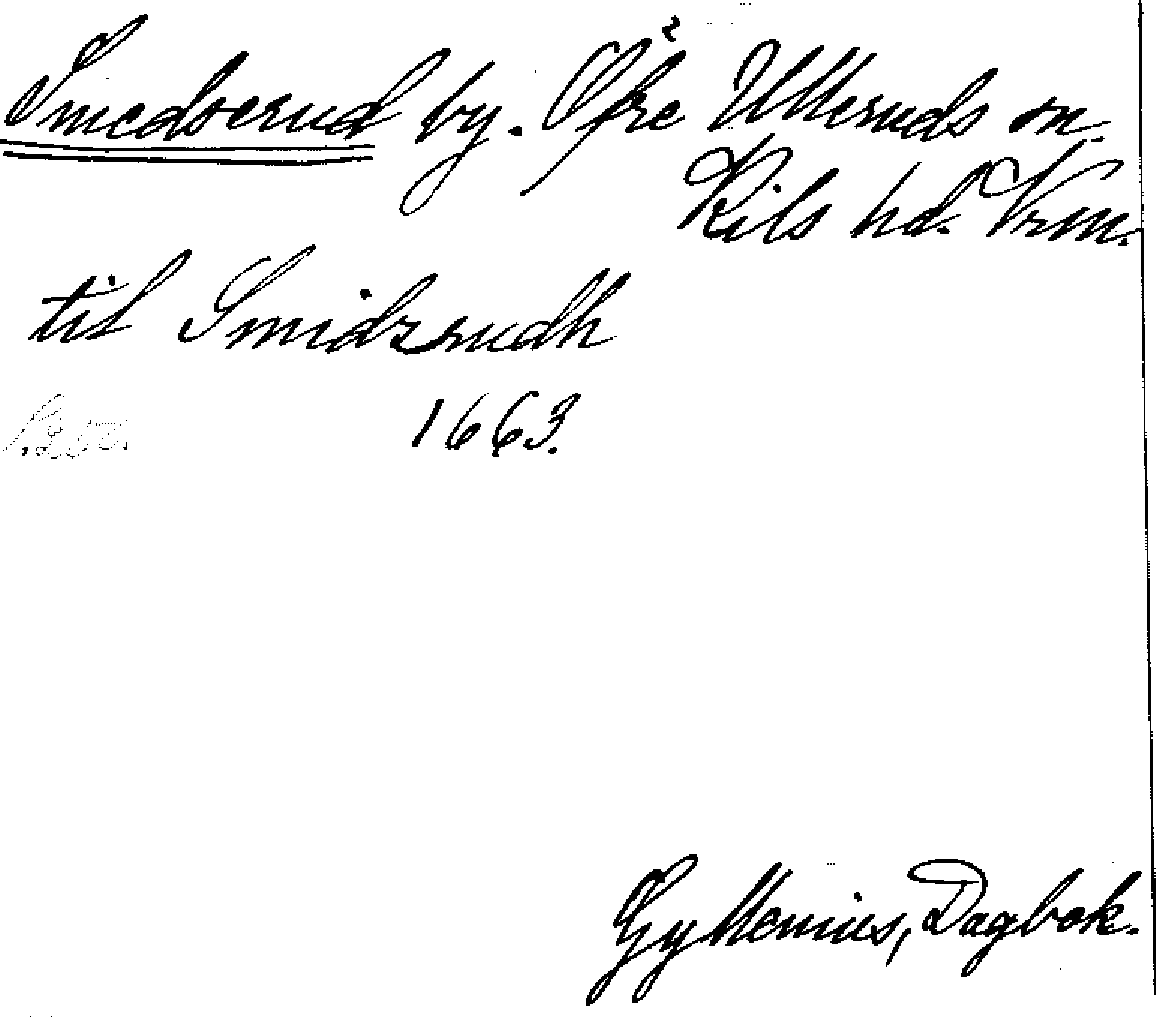 Smedserud by. Öfre Ulleruds sn.
Kils hd. Vrm.
til Smidzrudh
1663.
Gyllenius, Dagbok.